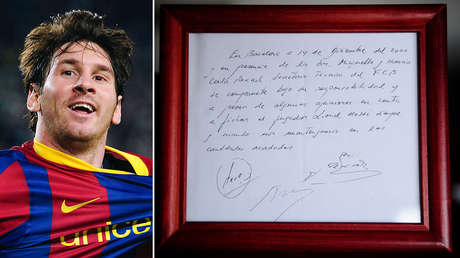 En Barcelona a 14 de Diciembre del 2000
y en presencia de los Sres Minguella y Horacio
Carles Rexach Secretario Técnico del F.C.B
se compromete bajo su responsabilidad y
a pesar de algunas opiniones en contra
a fichar al jugador Lionel Messi siempre
y cuando nos mantengamos en las
cantidades acordadas
unicef